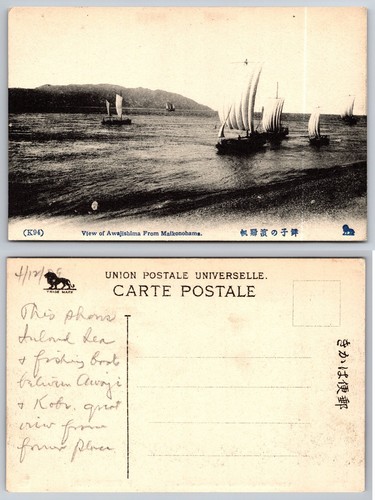 (K94)
View of Awajishima From Maikonohama.
帆歸濱の子舞
4/12/
TRADE MARK
UNION POSTALE UNIVERSELLE.
CARTE POSTALE
This shows
Inland Sea
& fishing boats
between Awaji
& Kobe. great
view from
former place
きかは便郵